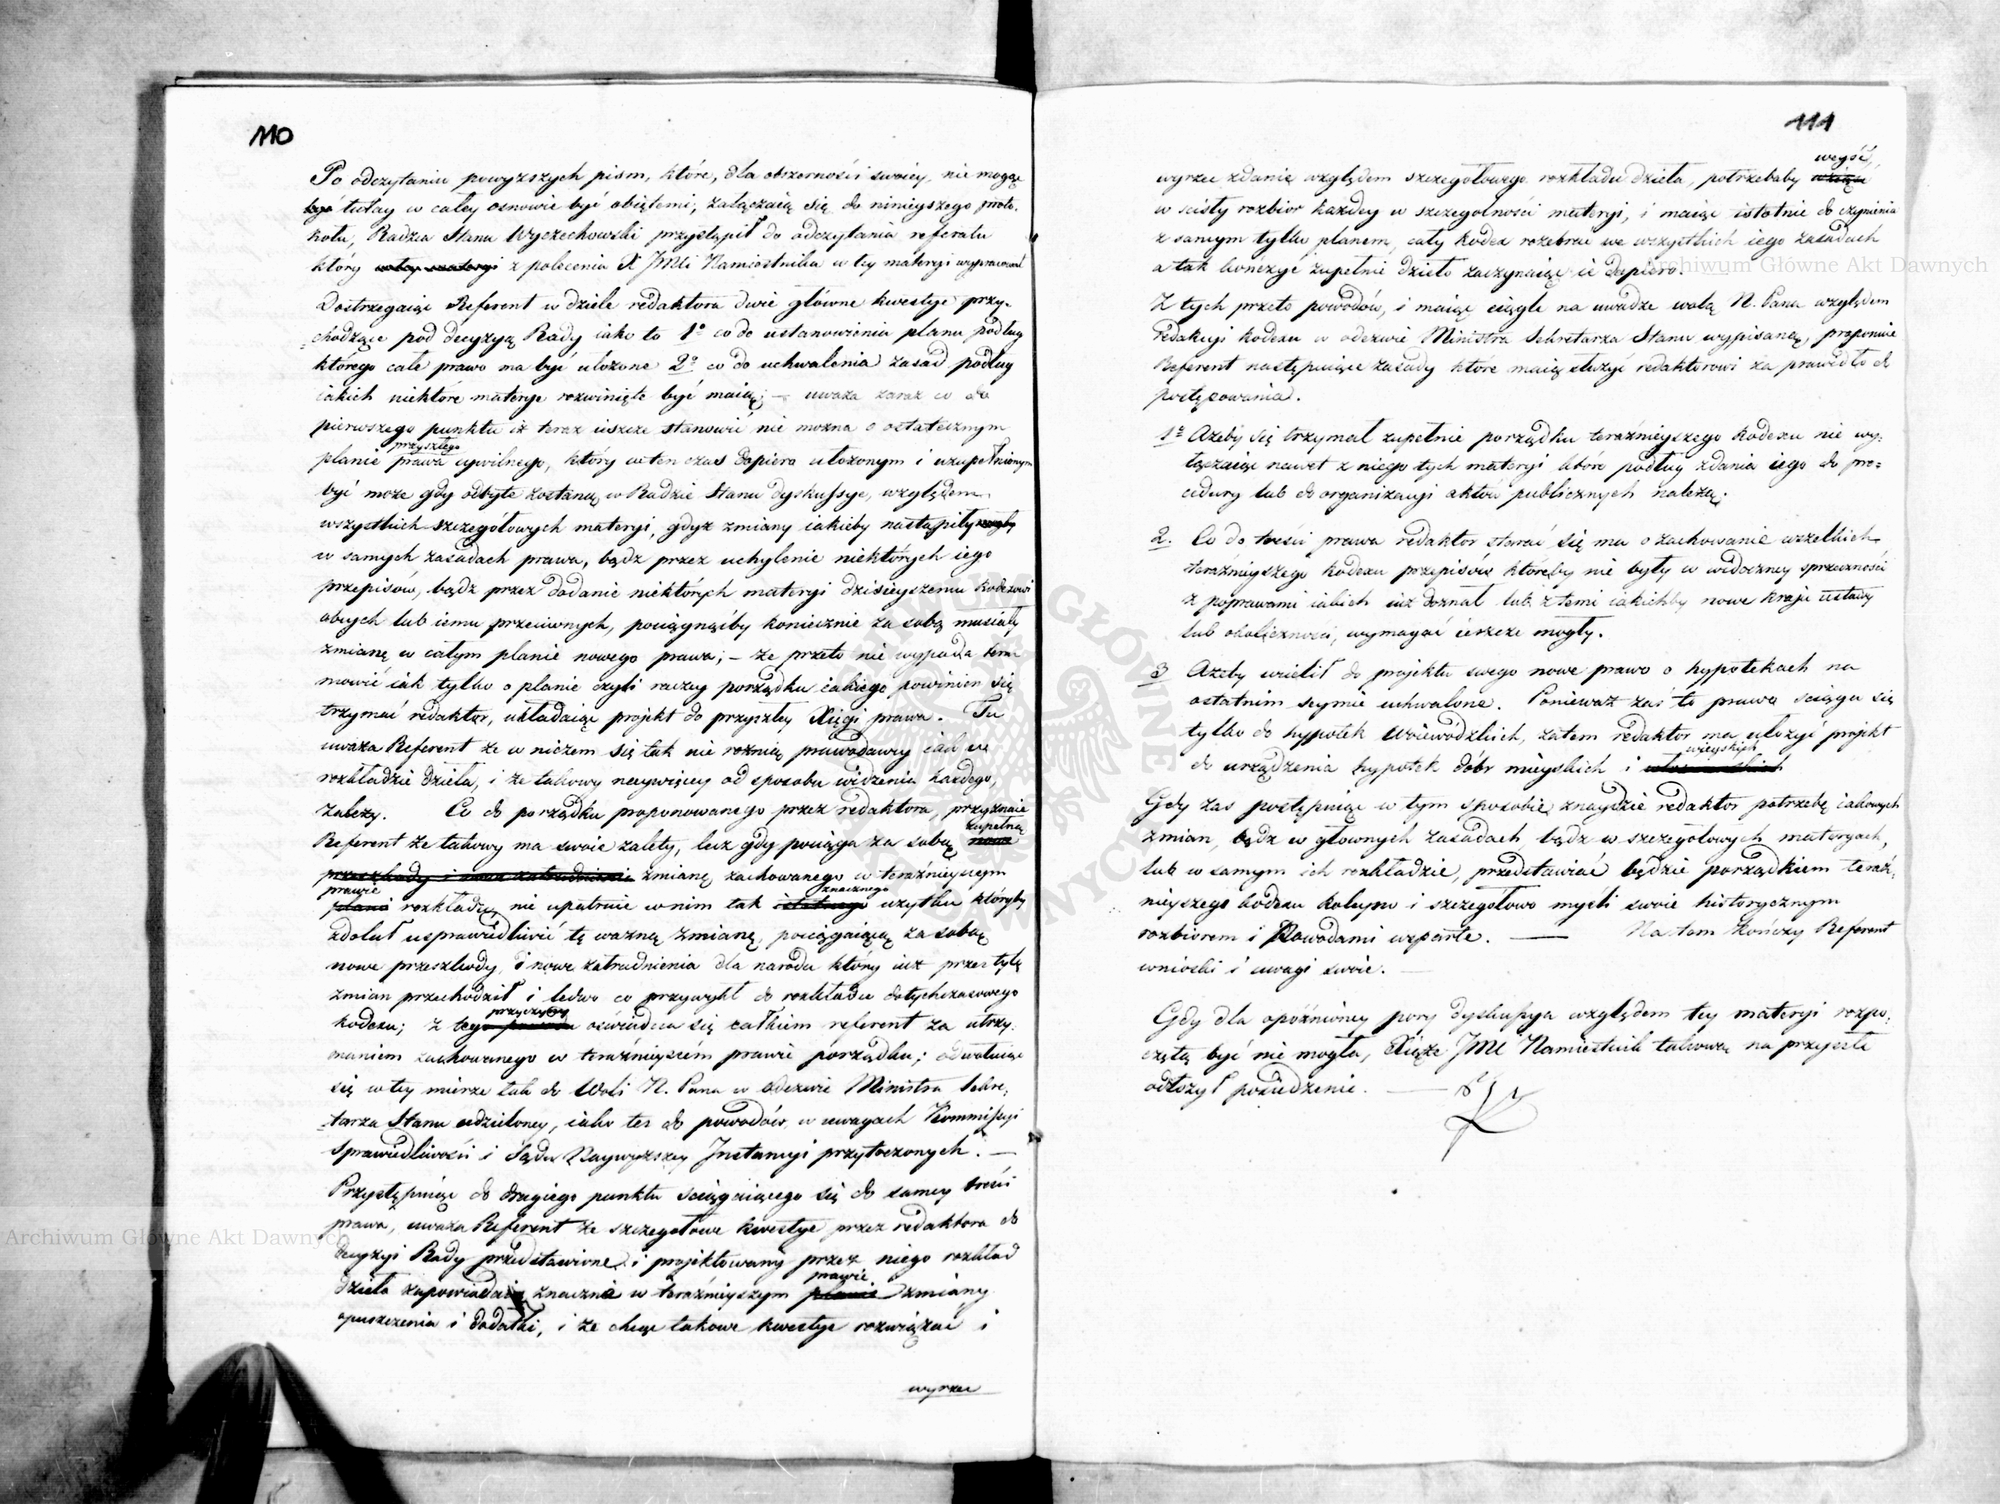 110
Po odczytaniu powyższych pism, które, dla obszerności swoiey, nie mogąc
być tutay w całey osnowie być obiętemi, załączaią się do ninieyszego proto-
kołu, Radzca Stanu Wyczechowski przystąpił do odczytania referatu
który w tey materyi z polecenia X JMci Namiestnika w tey materyi wypracował
Dostrzegaiąc Referent w dziele redaktora dwie główne kwestye przy-
chodzące pod decyzyą Rady iako to 1o co do ustanowienia planu podług
którego całe prawo ma być ułożone 2o co do uchwalenia zasad podług
iakich niektóre materye rozwinięte być maią; — uważa zaraz co do
pierwszego punktu iż teraz ieszcze stanowić nie można o ostatecznym
przyszłego
planie prawa cywilnego, który w ten czas dopiero ułożonym i uzupełnionym
być może gdy odbyte zostaną w Radzie Stanu dyskussye, względem
wszystkich szczegółowych materyi, gdyż zmiany iakieby nastąpiły mogły
w samych zasadach prawa, bądz przez uchylenie niektórych iego
przepisów, bądz przez dodanie niektórych materyi dzisieyszemu kodexowi
obcych lub iemu przeciwnych, pociągnąćby koniecznie za sobą musiały
zmianę w całym planie nowego prawa; — że przeto nie wypada teraz
mówić iak tylko o planie czyli raczey porządku iakiego powinien się
trzymać redaktor, układaiąc projekt do przyszłey Xięgi prawa. Tu
uważa Referent że w niczem się tak nie różnią prawodawcy iak w
rozkładzie dzieła, i że takowy naywięcey od sposobu widzenia każdego,
zależy. Co do porządku proponowanego przez redaktora, przyznaie
zupełną
Referent że takowy ma swoie zalety, lecz gdy pociąga za sobą nowe
przeszkody i nowe zatrudnienia zmianę zachowanego w teraźnieyszym
prawie znacznego
planie rozkładu, nie upatruie w nim tak istotnego użytku któryby
zdołał usprawiedliwić tę ważną zmianę, pociągaiącą za sobą
nowe przeszkody, i nowe zatrudnienia dla narodu który iuż przez tyle
zmian przechodził i ledwo co przywykł do rozkładu dotychczasowego
przyczyny
kodexu; z tego powodu oświadcza się całkiem referent za utrzy-
maniem zachowanego w teraźnieyszém prawie porządku; odwołuiąc
się w tey mierze tak do Woli N. Pana w odezwie Ministra Sekre-
tarza Stanu udzieloney, iako też do powodów w uwagach Kommissyi
Sprawiedliwości i Sądu Naywyższey Instancyi przytoczonych. —
Przystępuiąc do drugiego punktu ściągaiącego się do samey treści
prawa, uważa Referent że szczegółowe kwestye przez redaktora do
decyzyi Rady przedstawione i projektowany przez niego rozkład
prawie
dzieła zapowiadaią znaczne w teraźnieyszym planie zmiany
opuszczenia i dodatki, i że chcąc takowe kwestye rozwiązać i
wyrzec
111
weyść
wyrzec zdanie względem szczegółowego rozkładu dzieła, potrzebaby wziąść
w ścisły rozbiór każdey w szczególności materyi, i maiąc istotnie do czynienia
z samym tylko planem, cały kodex rozebrać we wszystkich iego zasadach
a tak kończyć zupełnie dzieło zaczynaiąc ie dopiero.
Z tych przeto powodów, i maiąc ciągle na uwadze wolą N. Pana względem
redakcyi kodexu w odezwie Ministra Sekretarza Stanu wypisaną, proponuie
Referent następuiące zasady które maią służyć redaktorowi za prawidło do
postępowania.
1o Ażeby się trzymał zupełnie porządku teraźnieyszego kodexu nie wy-
łączaiąc nawet z niego tych materyi które podług zdania iego do pro-
cedury lub do organizacyi aktów publicznych należą.
2. Co do treści prawa redaktor starać się ma o zachowanie wszelkich
teraźnieyszego kodexu przepisów któreby nie były w widoczney sprzeczności
z poprawami iakich iuż doznał lub z temi iakichby nowe kraiu ustawy
lub okoliczności, wymagać ieszcze mogły.
3 Ażeby wcielił do projektu swego nowe prawo o hypotekach na
ostatnim seymie uchwalone. Ponieważ zaś to prawo ściąga się
tylko do hypotek Woiewódzkich, zatem redaktor ma ułożyć projekt
wieyskich
do urządzenia hypotek dóbr mieyskich i włosciańskich
Gdy zaś postępuiąc w tym sposobie, znaydzie redaktor potrzebę iakowych
zmian, bądz w głównych zasadach, bądz w szczegółowych materyach,
lub w samym ich rozkładzie, przedstawiać będzie porządkiem teraź-
nieyszego kodexu koleyno i szczegółowo myśli swoie historycznym
rozbiorem i Powodami wsparte. — Na tem kończy Referent
wnioski i uwagi swoie. —
Gdy dla opóźnioney pory dyskussya względem tey materyi rozpo-
czętą być nie mogła, Xiąże JMć Namiestnik takową na przyszłe
odłożył posiedzenie. —
Archiwum Główne Akt Dawnych
Archiwum Główne Akt Dawnych